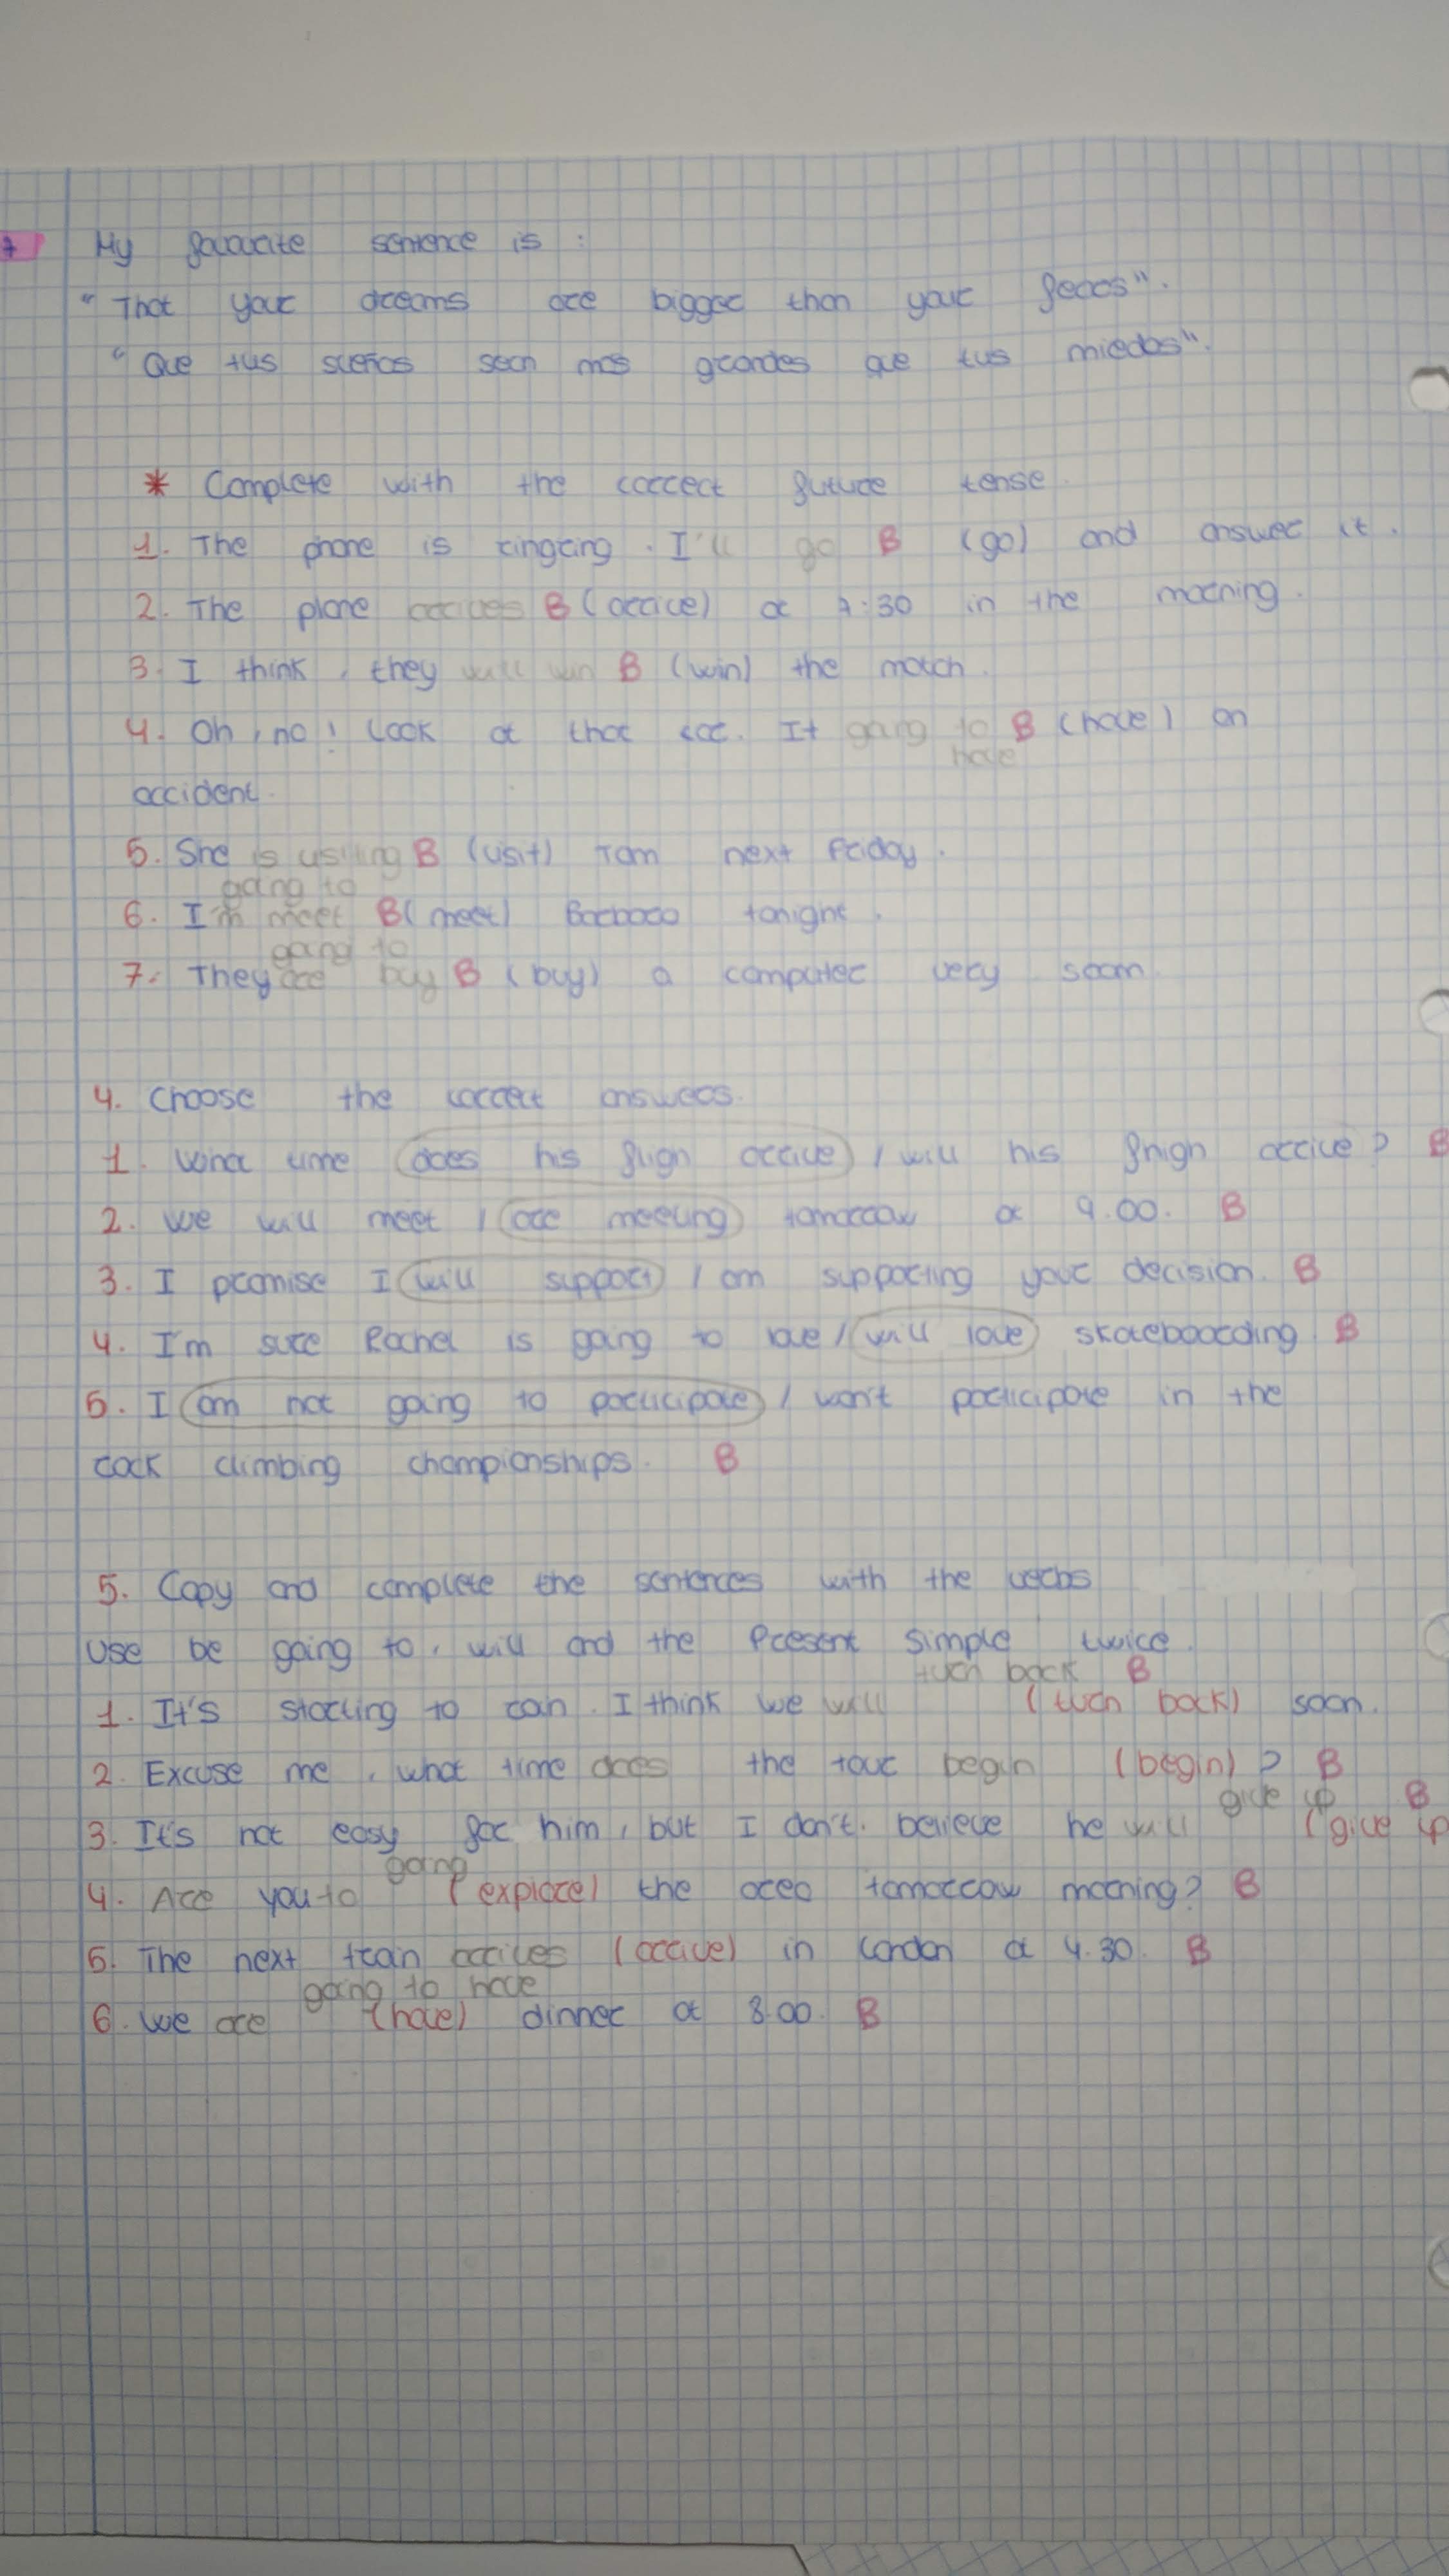 7 My favourite sentence is :
"That your dreams are bigger than your fears".
"Que tus sueños sean más grandes que tus miedos".
* Complete with the correct future tense.
1. The phone is ringring. I'll go B (go) and answer it.
2. The plane arrives B (arrive) at 7:30 in the morning.
3. I think, they will win B (win) the match.
4. Oh, no! Look at that car. It going to B (have) an
have
accident.
5. She is visiting B (visit) Tom next Friday.
going to
6. I'm meet B (meet) Barbara tonight.
going to
7. They are buy B (buy) a computer very soon
4. Choose the correct answers.
1. What time does his fligh arrive / will his fhigh arrive? B
2. We will meet / are meeting tomorrow at 9.00. B
3. I promise I will support / am supporting your decision. B
4. I'm sure Rachel is going to love / will love skateboarding B
5. I am not going to participate / won't participate in the
rock climbing championships. B
5. Copy and complete the sentences with the verbs
Use be going to, will and the Present Simple twice.
turn back B
1. It's starting to rain. I think we will (turn back) soon.
2. Excuse me, what time does the tour begin (begin)? B
give up B
3. It's not easy for him, but I don't believe he will (give up
going
4. Are you to (explore) the area tomorrow morning? B
5. The next train arrives (arrive) in London at 4.30. B
going to have
6. We are (have) dinner at 8.00. B